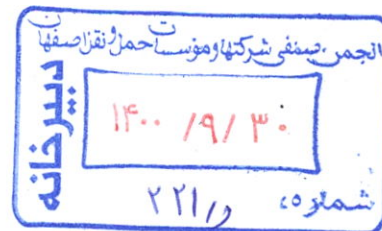 انجمن صنفی شرکتها و مؤسسات حمل و نقل اصفهان
دبیرخانه
۱۴۰۰ /۹/ ۳۰
شماره: ۲۲۱/و